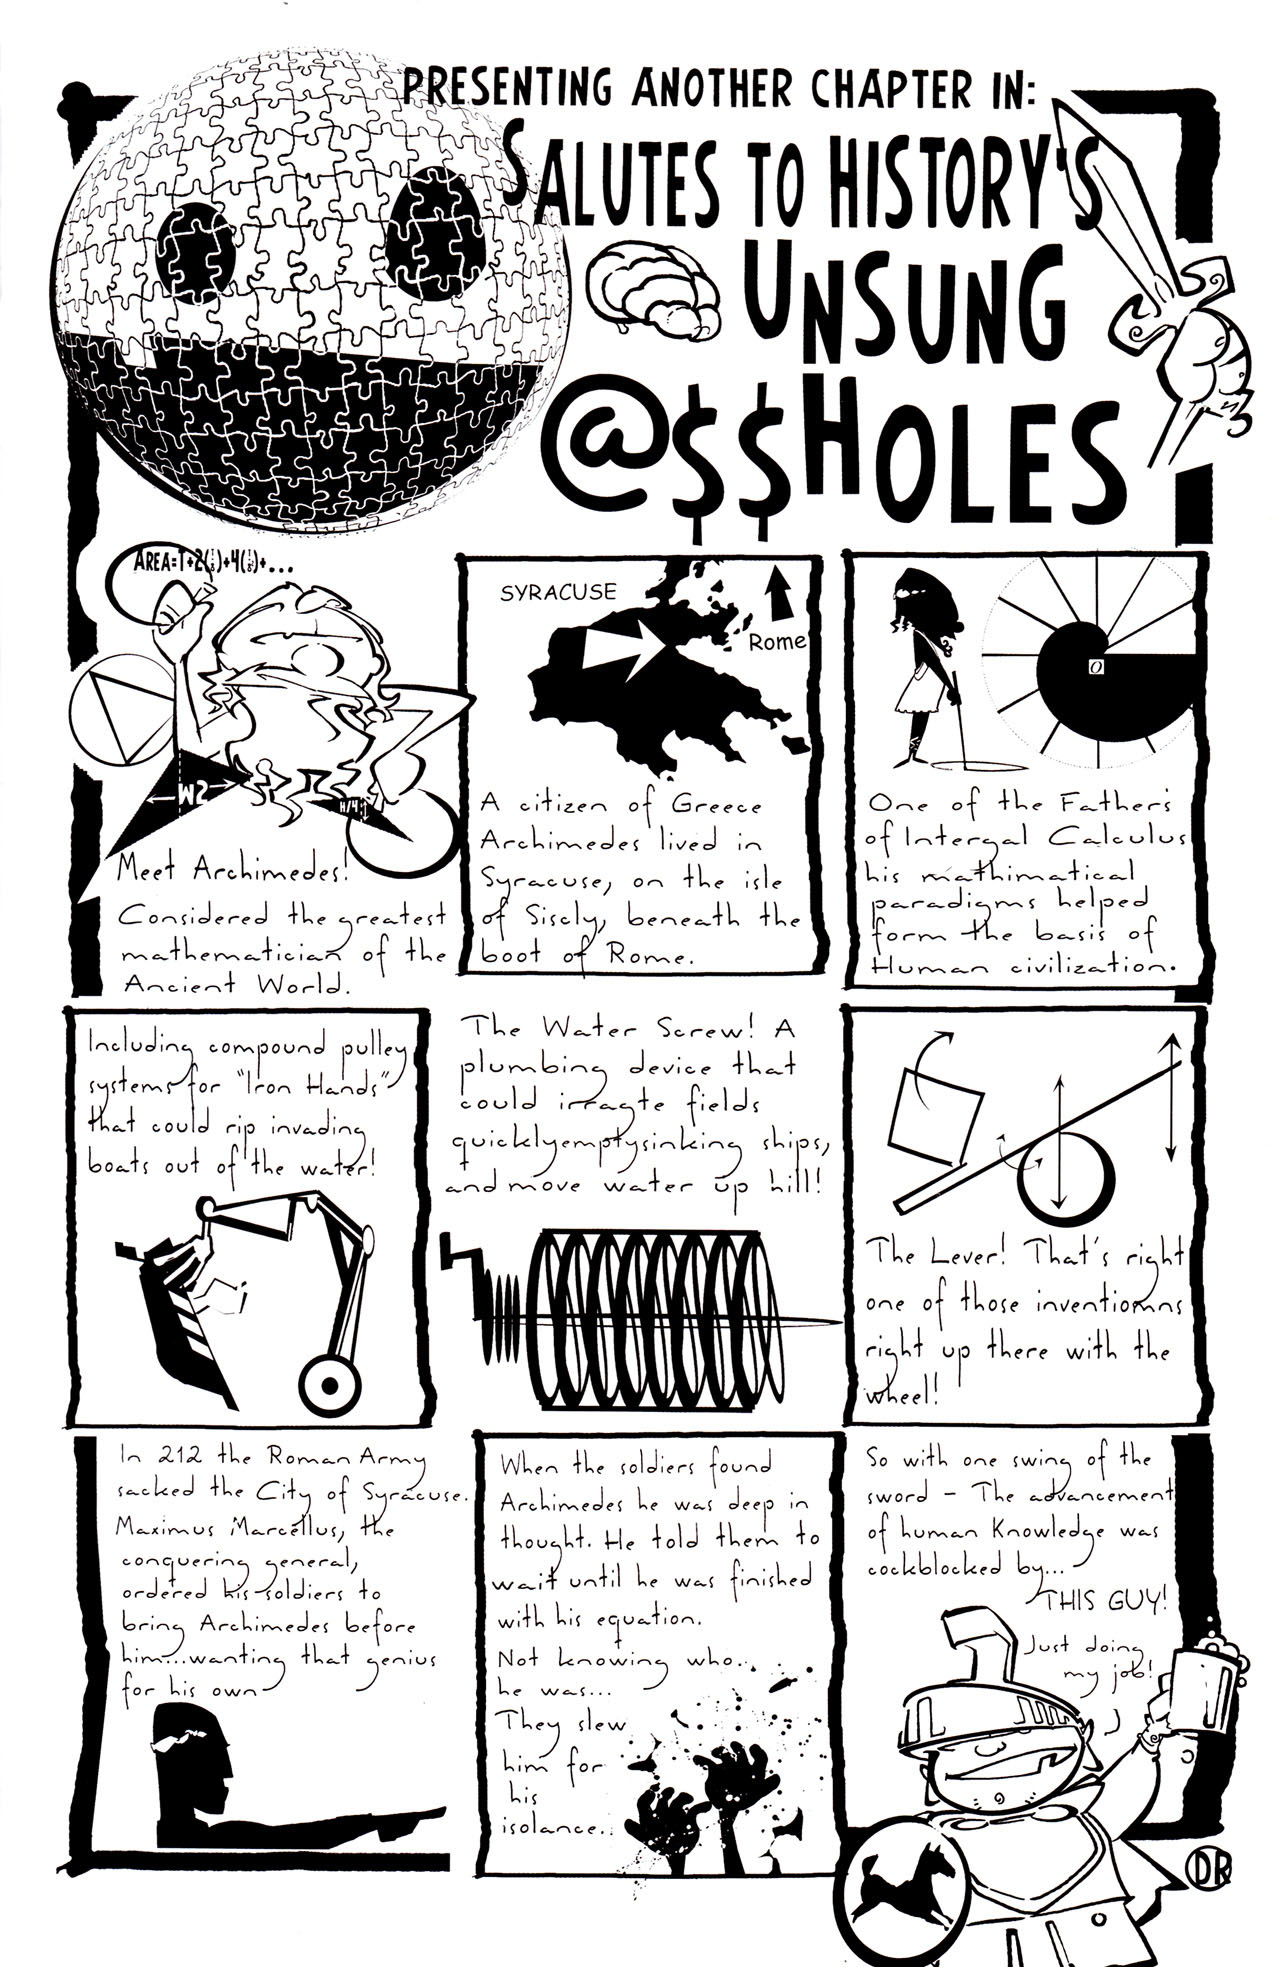 PRESENTING ANOTHER CHAPTER IN:
SALUTES TO HISTORY'S
UNSUNG
@$$HOLES
AREA=T+2(⅛)+4(⅛)+...
W2
H/4
Meet Archimedes!
Considered the greatest
mathematician of the
Ancient World.
SYRACUSE
Rome
A citizen of Greece
Archimedes lived in
Syracuse, on the isle
of Siscly, beneath the
boot of Rome.
O
One of the Father's
of Intergal Calculus
his mathimatical
paradigms helped
form the basis of
Human civilization.
Including compound pulley
systems for "Iron Hands"
that could rip invading
boats out of the water!
The Water Screw! A
plumbing device that
could irragte fields
quicklyemptysinking ships,
and move water up hill!
The Lever! That's right
one of those inventiomns
right up there with the
wheel!
In 212 the Roman Army
sacked the City of Syracuse.
Maximus Marcellus, the
conquering general,
ordered his soldiers to
bring Archimedes before
him...wanting that genius
for his own
When the soldiers found
Archimedes he was deep in
thought. He told them to
wait until he was finished
with his equation.
Not knowing who..
he was...
They slew
him for
his
isolance..
So with one swing of the
sword - The advancement
of human Knowledge was
cockblocked by...
THIS GUY!
Just doing
my job!
DR